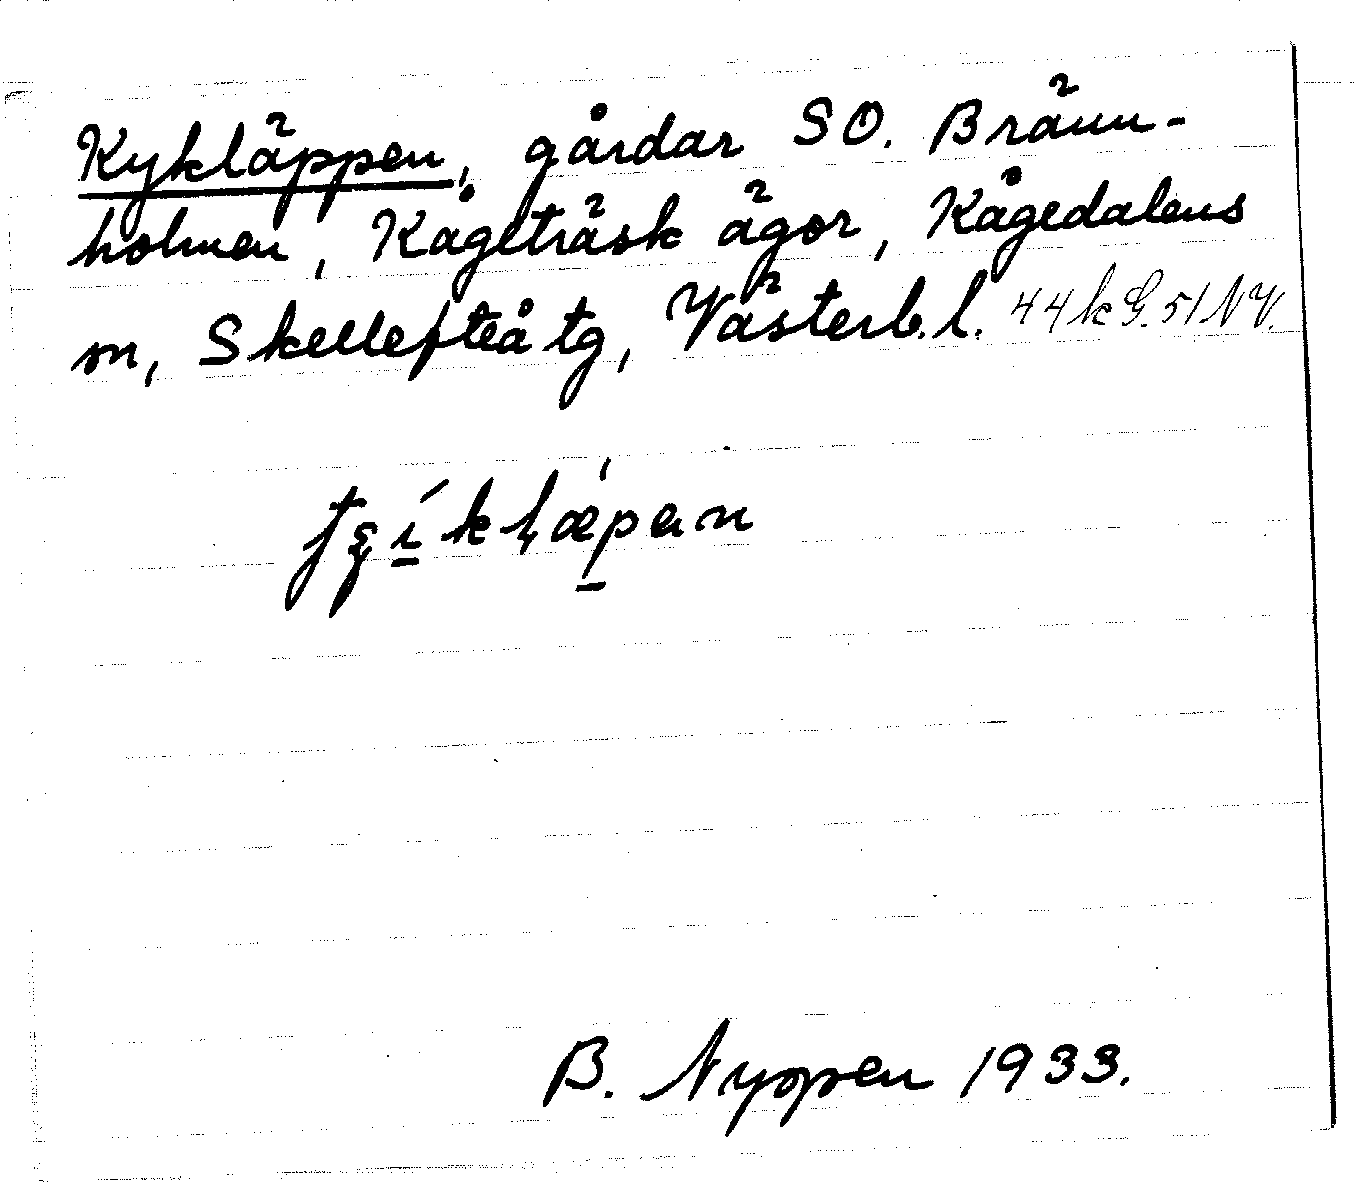 Kykläppen, gårdar SO. Bränn-
holmen, Kågeträsk ägor, Kågedalens
sn, Skellefteå tg, Västerb. l. 44k G. 51 NV.
B. Nyppen 1933.